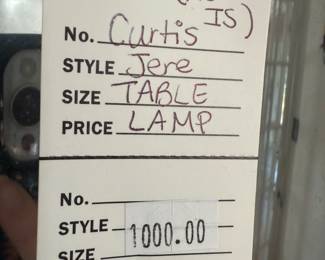 IS)
No. Curtis
STYLE Jere
SIZE TABLE
PRICE LAMP
No.
STYLE 1000.00
SIZE